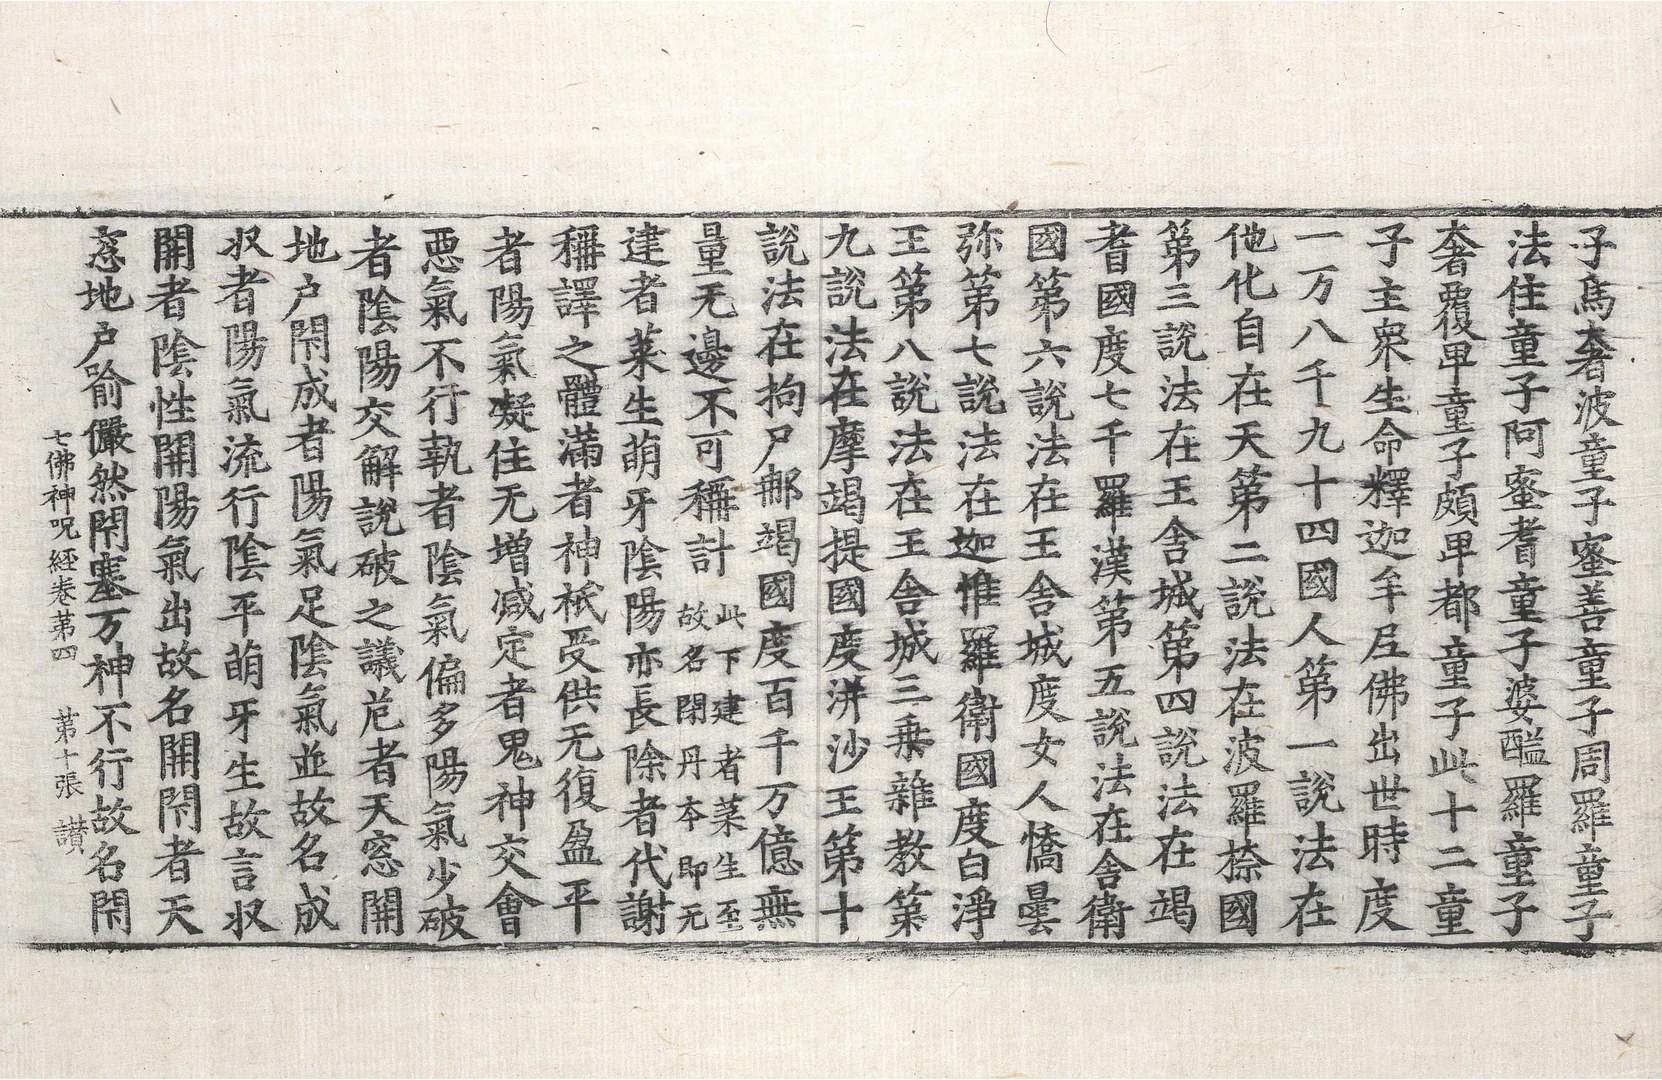 子馬奢波童子蜜善童子周羅童子
法住童子阿蜜耆童子婆醯羅童子
奢覆卑童子頗卑都童子此十二童
子主衆生命釋迦牟尼佛出世時度
一万八千九十四國人第一說法在
他化自在天第二說法在波羅㮈國
第三說法在王舍城第四說法在竭
耆國度七千羅漢第五說法在舍衛
國第六說法在王舍城度女人憍曇
弥第七說法在迦惟羅衛國度白淨
王第八說法在王舍城三乗雜教第
九說法在摩竭提國度洴沙王第十
說法在拘尸郍竭國度百千万億無
量无邊不可稱計此下建者菜生至
故名閇丹夲即无
建者菜生萌牙陰陽亦長除者代謝
稱譯之體滿者神祇受供无復盈平
者陽氣凝住无增减定者鬼神交會
惡氣不行執者陰氣偏多陽氣少破
者陰陽交解說破之議危者天窓開
地户閇成者陽氣足陰氣並故名成
収者陽氣流行陰平萌牙生故言収
開者陰性開陽氣出故名開閇者天
窓地户喻儼然閇塞万神不行故名閇
七佛神呪經卷第四　第十張　讃